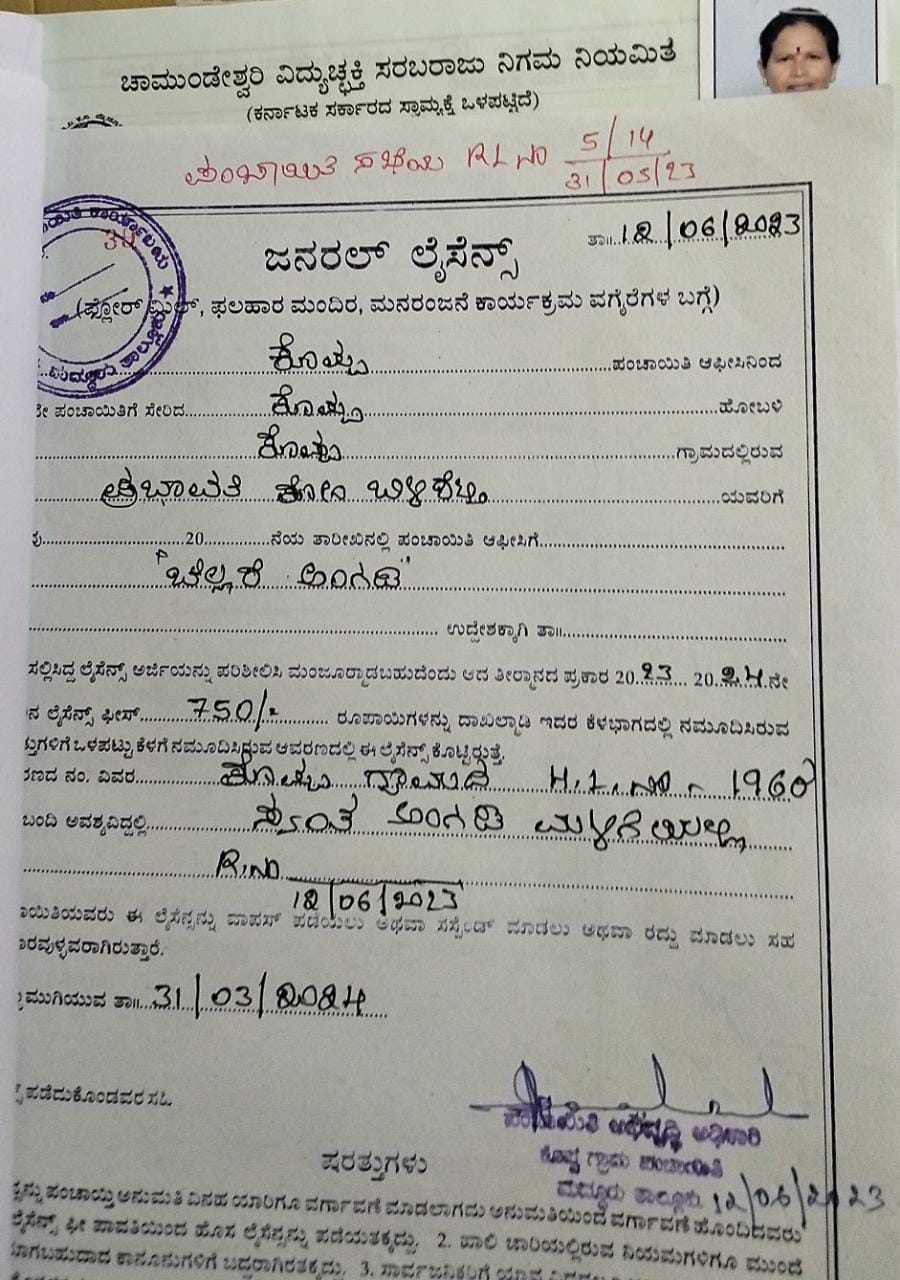 ಚಾಮುಂಡೇಶ್ವರಿ ವಿದ್ಯುಚ್ಛಕ್ತಿ ಸರಬರಾಜು ನಿಗಮ ನಿಯಮಿತ
(ಕರ್ನಾಟಕ ಸರ್ಕಾರದ ಸ್ವಾಮ್ಯಕ್ಕೆ ಒಳಪಟ್ಟಿದೆ)
ಪಂಚಾಯಿತಿ ಸಭೆಯ RL NO 5/14
31/05/23
ತಾ॥ 12/06/2023
ಜನರಲ್ ಲೈಸೆನ್ಸ್
(ಫ್ಲೋರ್ ಮಿಲ್, ಫಲಹಾರ ಮಂದಿರ, ಮನರಂಜನೆ ಕಾರ್ಯಕ್ರಮ ವಗೈರೆಗಳ ಬಗ್ಗೆ)
ಕೊಪ್ಪ ಪಂಚಾಯಿತಿ ಆಫೀಸಿನಿಂದ
ನೇ ಪಂಚಾಯಿತಿಗೆ ಸೇರಿದ ಕೊಪ್ಪ ಹೋಬಳಿ
ಕೊಪ್ಪ ಗ್ರಾಮದಲ್ಲಿರುವ
ಪ್ರಭಾವತಿ ಕೋಂ ಯವರಿಗೆ
20 ನೆಯ ತಾರೀಖಿನಲ್ಲಿ ಪಂಚಾಯಿತಿ ಆಫೀಸಿಗೆ
"ಚಿಲ್ಲರೆ ಅಂಗಡಿ"
ಉದ್ದೇಶಕ್ಕಾಗಿ ತಾ॥
ಸಲ್ಲಿಸಿದ್ದ ಲೈಸೆನ್ಸ್ ಅರ್ಜಿಯನ್ನು ಪರಿಶೀಲಿಸಿ ಮಂಜೂರ್ಮಾಡಬಹುದೆಂದು ಆದ ತೀರ್ಮಾನದ ಪ್ರಕಾರ 2023 2024 ನೇ
ಲೈಸೆನ್ಸ್ ಫೀಸ್ 750/- ರೂಪಾಯಿಗಳನ್ನು ದಾಖಲ್ಮಾಡಿ ಇದರ ಕೆಳಭಾಗದಲ್ಲಿ ನಮೂದಿಸಿರುವ
ತ್ತುಗಳಿಗೆ ಒಳಪಟ್ಟು ಕೆಳಗೆ ನಮೂದಿಸಿರುವ ಆವರಣದಲ್ಲಿ ಈ ಲೈಸೆನ್ಸ್ ಕೊಟ್ಟಿರುತ್ತೆ.
ರಣದ ನಂ. ವಿವರ ಕೊಪ್ಪ ಗ್ರಾಮದ H.L.NO - 1960
ಬಂದಿ ಅವಶ್ಯವಿದ್ದಲ್ಲಿ ಸ್ವಂತ ಅಂಗಡಿ ಮಳಿಗೆಯಲ್ಲಿ
R.NO
12/06/2023
ಾಯಿತಿಯವರು ಈ ಲೈಸೆನ್ಸನ್ನು ವಾಪಸ್ ಪಡೆಯಲು ಅಥವಾ ಸಸ್ಪೆಂಡ್ ಮಾಡಲು ಅಥವಾ ರದ್ದು ಮಾಡಲು ಸಹ
ಾರವುಳ್ಳವರಾಗಿರುತ್ತಾರೆ.
ಮುಗಿಯುವ ತಾ॥ 31/03/2024
ಪಡೆದುಕೊಂಡವರ ಸಹಿ
ಪಂಚಾಯಿತಿ ಅಭಿವೃದ್ಧಿ ಅಧಿಕಾರಿ
ಕೊಪ್ಪ ಗ್ರಾಮ ಪಂಚಾಯಿತಿ
ಮದ್ದೂರು ತಾಲ್ಲೂಕು. 12/06/2023
ಷರತ್ತುಗಳು
ಪಂಚಾಯ್ತಿ ಅನುಮತಿ ವಿನಹ ಯಾರಿಗೂ ವರ್ಗಾವಣೆ ಮಾಡಲಾಗದು ಅನುಮತಿಯಿಂದ ವರ್ಗಾವಣೆ ಹೊಂದಿದವರು
ಲೈಸೆನ್ಸ್ ಫೀ ಪಾವತಿಯಿಂದ ಹೊಸ ಲೈಸೆನ್ಸನ್ನು ಪಡೆಯತಕ್ಕದ್ದು. 2. ಹಾಲಿ ಜಾರಿಯಲ್ಲಿರುವ ನಿಯಮಗಳಿಗೂ ಮುಂದೆ
ಾಗಬಹುದಾದ ಕಾನೂನುಗಳಿಗೆ ಬದ್ಧರಾಗಿರತಕ್ಕದ್ದು. 3. ಸಾರ್ವಜನಿಕರಿಗೆ ಯಾವ